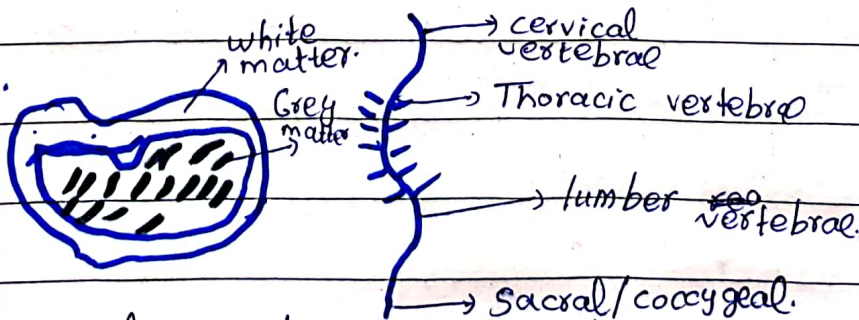 white
matter.
Grey
matter
cervical
vertebral
Thoracic vertebrae
lumber
vertebral.
Sacral/coccygeal.